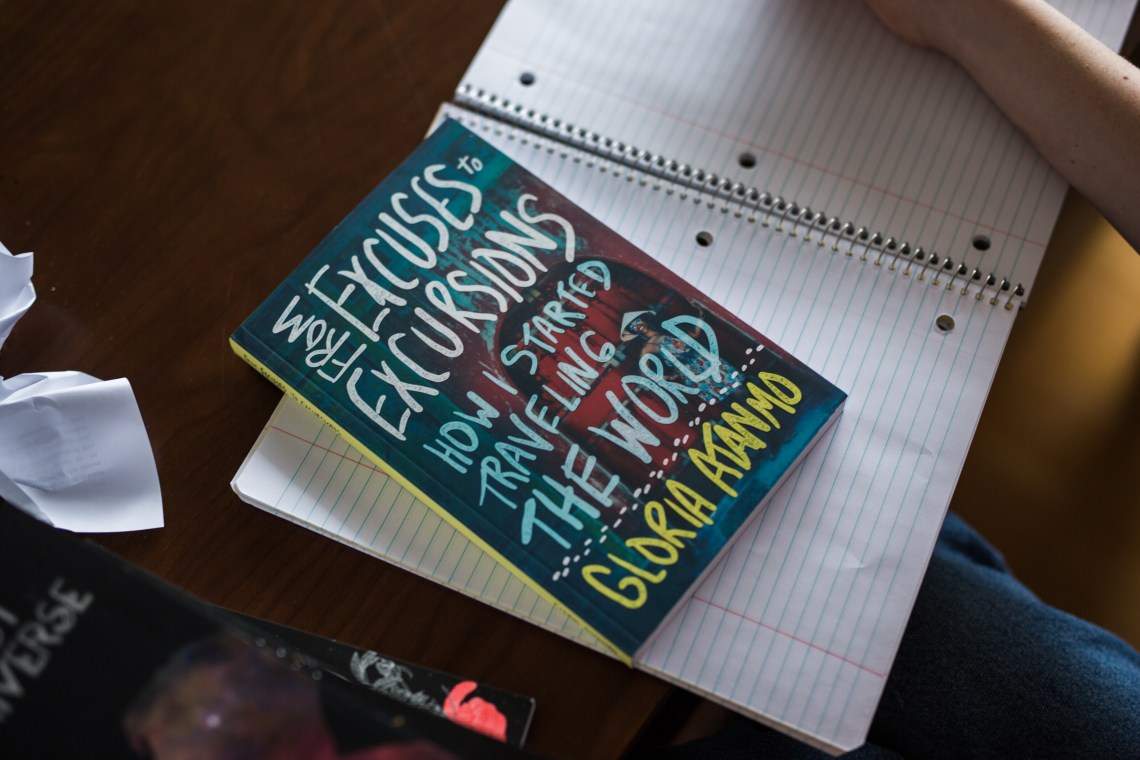 FROM EXCUSES to
EXCURSIONS
HOW I STARTED
TRAVELING
THE WORLD
GLORIA ATANMO